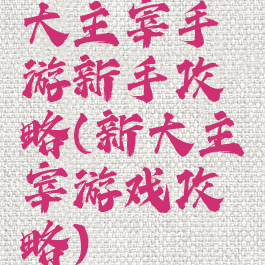 大主宰手
游新手攻
略(新大主
宰游戏攻
略)